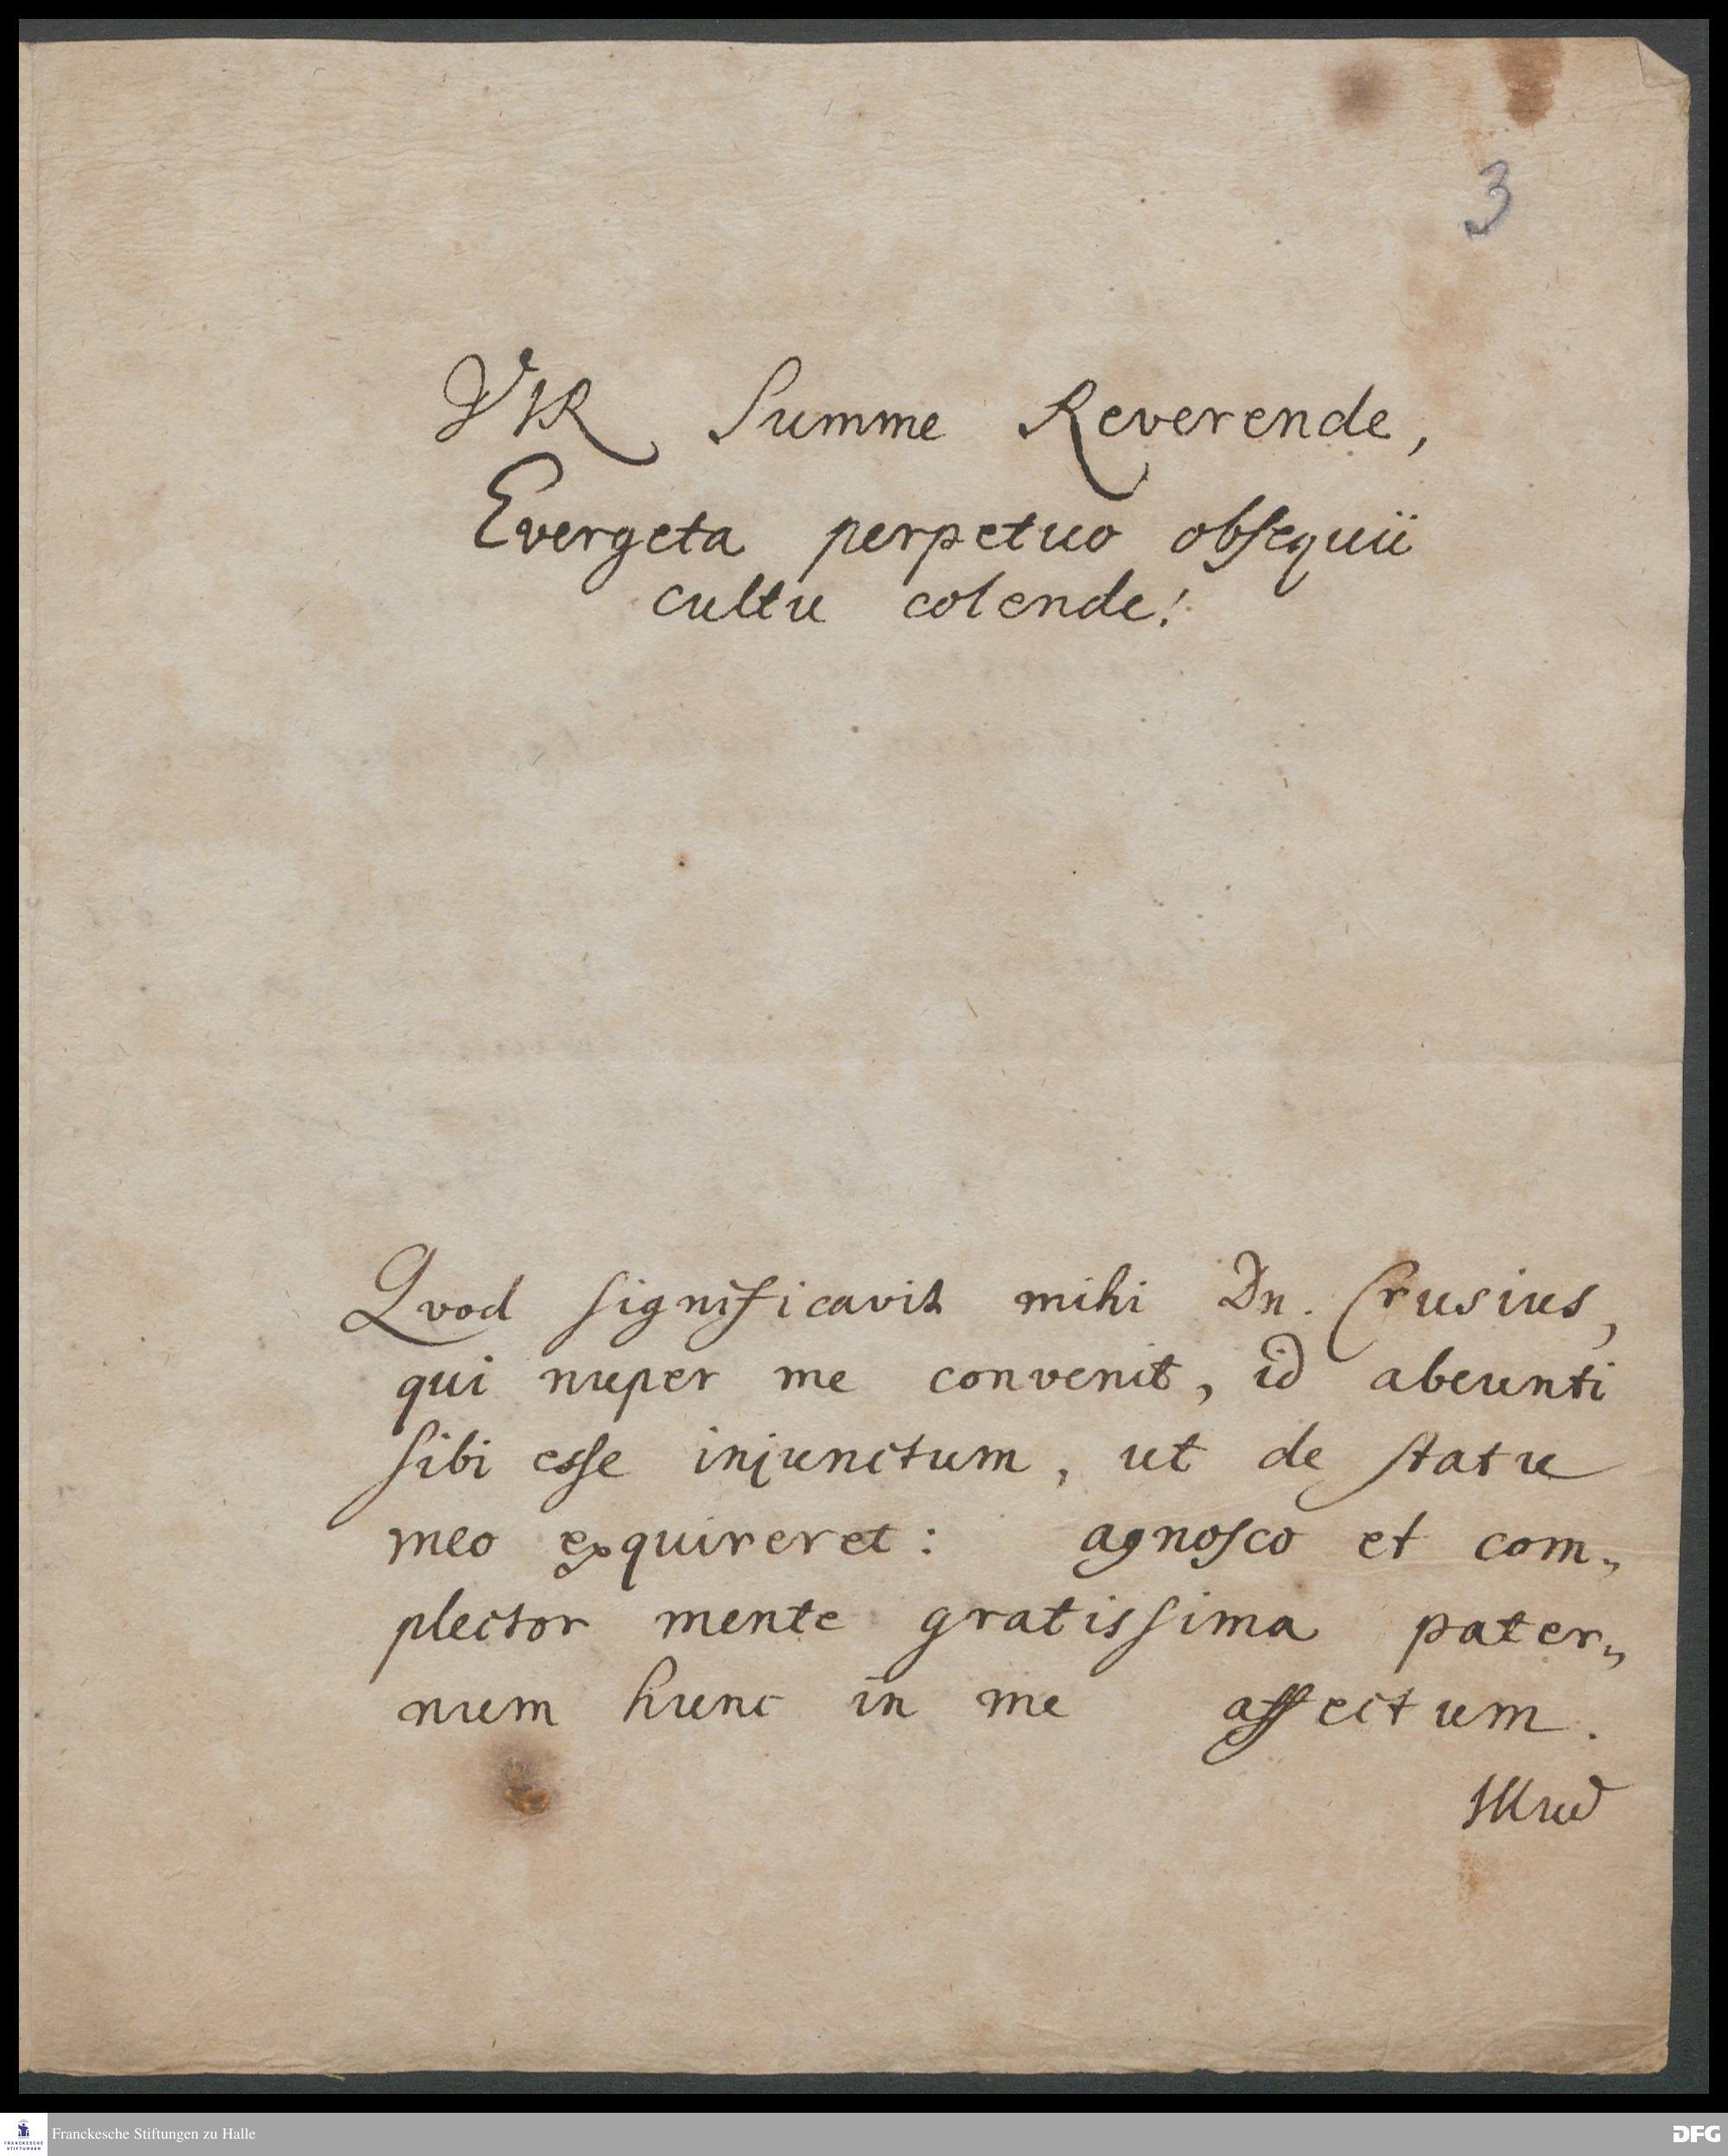 3
VIR Summe Reverende,
Evergeta perpetuo obsequii
cultu colende!
Qvod significavit mihi Dn. Crusius,
qui nuper me convenit, id abeunti
sibi esse injunctum, ut de statu
meo exquireret: agnosco et com„
plector mente gratissima pater„
num hunc in me affectum.
Illud
FRANCKESCHE STIFTUNGEN
Franckesche Stiftungen zu Halle
DFG